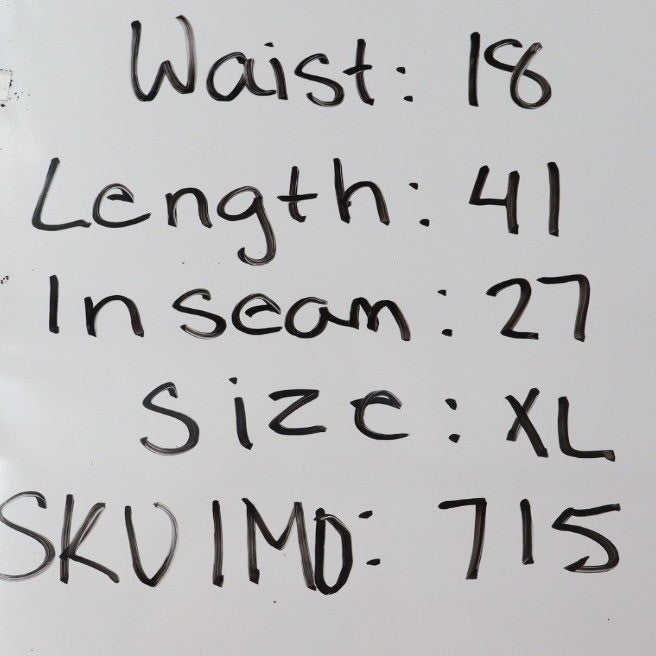 Waist: 18
Length: 41
Inseam: 27
Size: XL
SKU IMD: 715